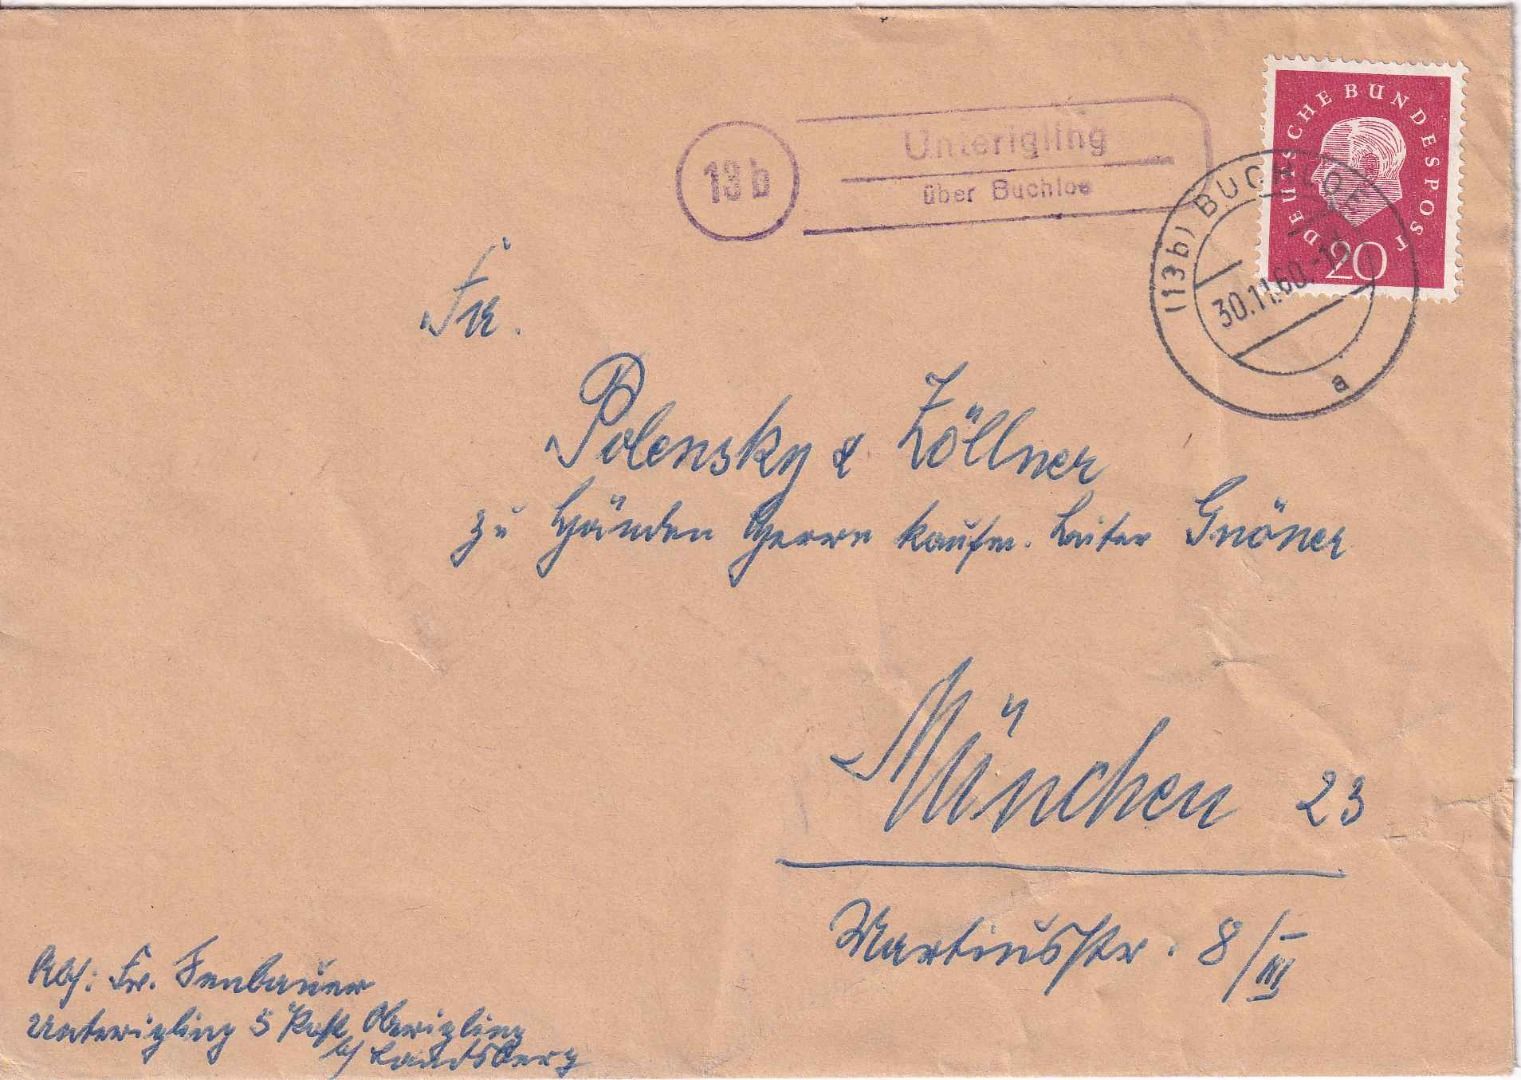 DEUTSCHE BUNDESPOST
20
13b
Unterigling
über Buchloe
(13b) BUCHLOE
30.11.60.-13
a
Fa.
Polensky & Zöllner
zu Händen Herrn kaufm. Leiter Gnöner
München 23
Martiusstr. 8/III
Abs: Fr. Fenbauer
Unterigling 5 Post Oberigling
b/ Landsberg